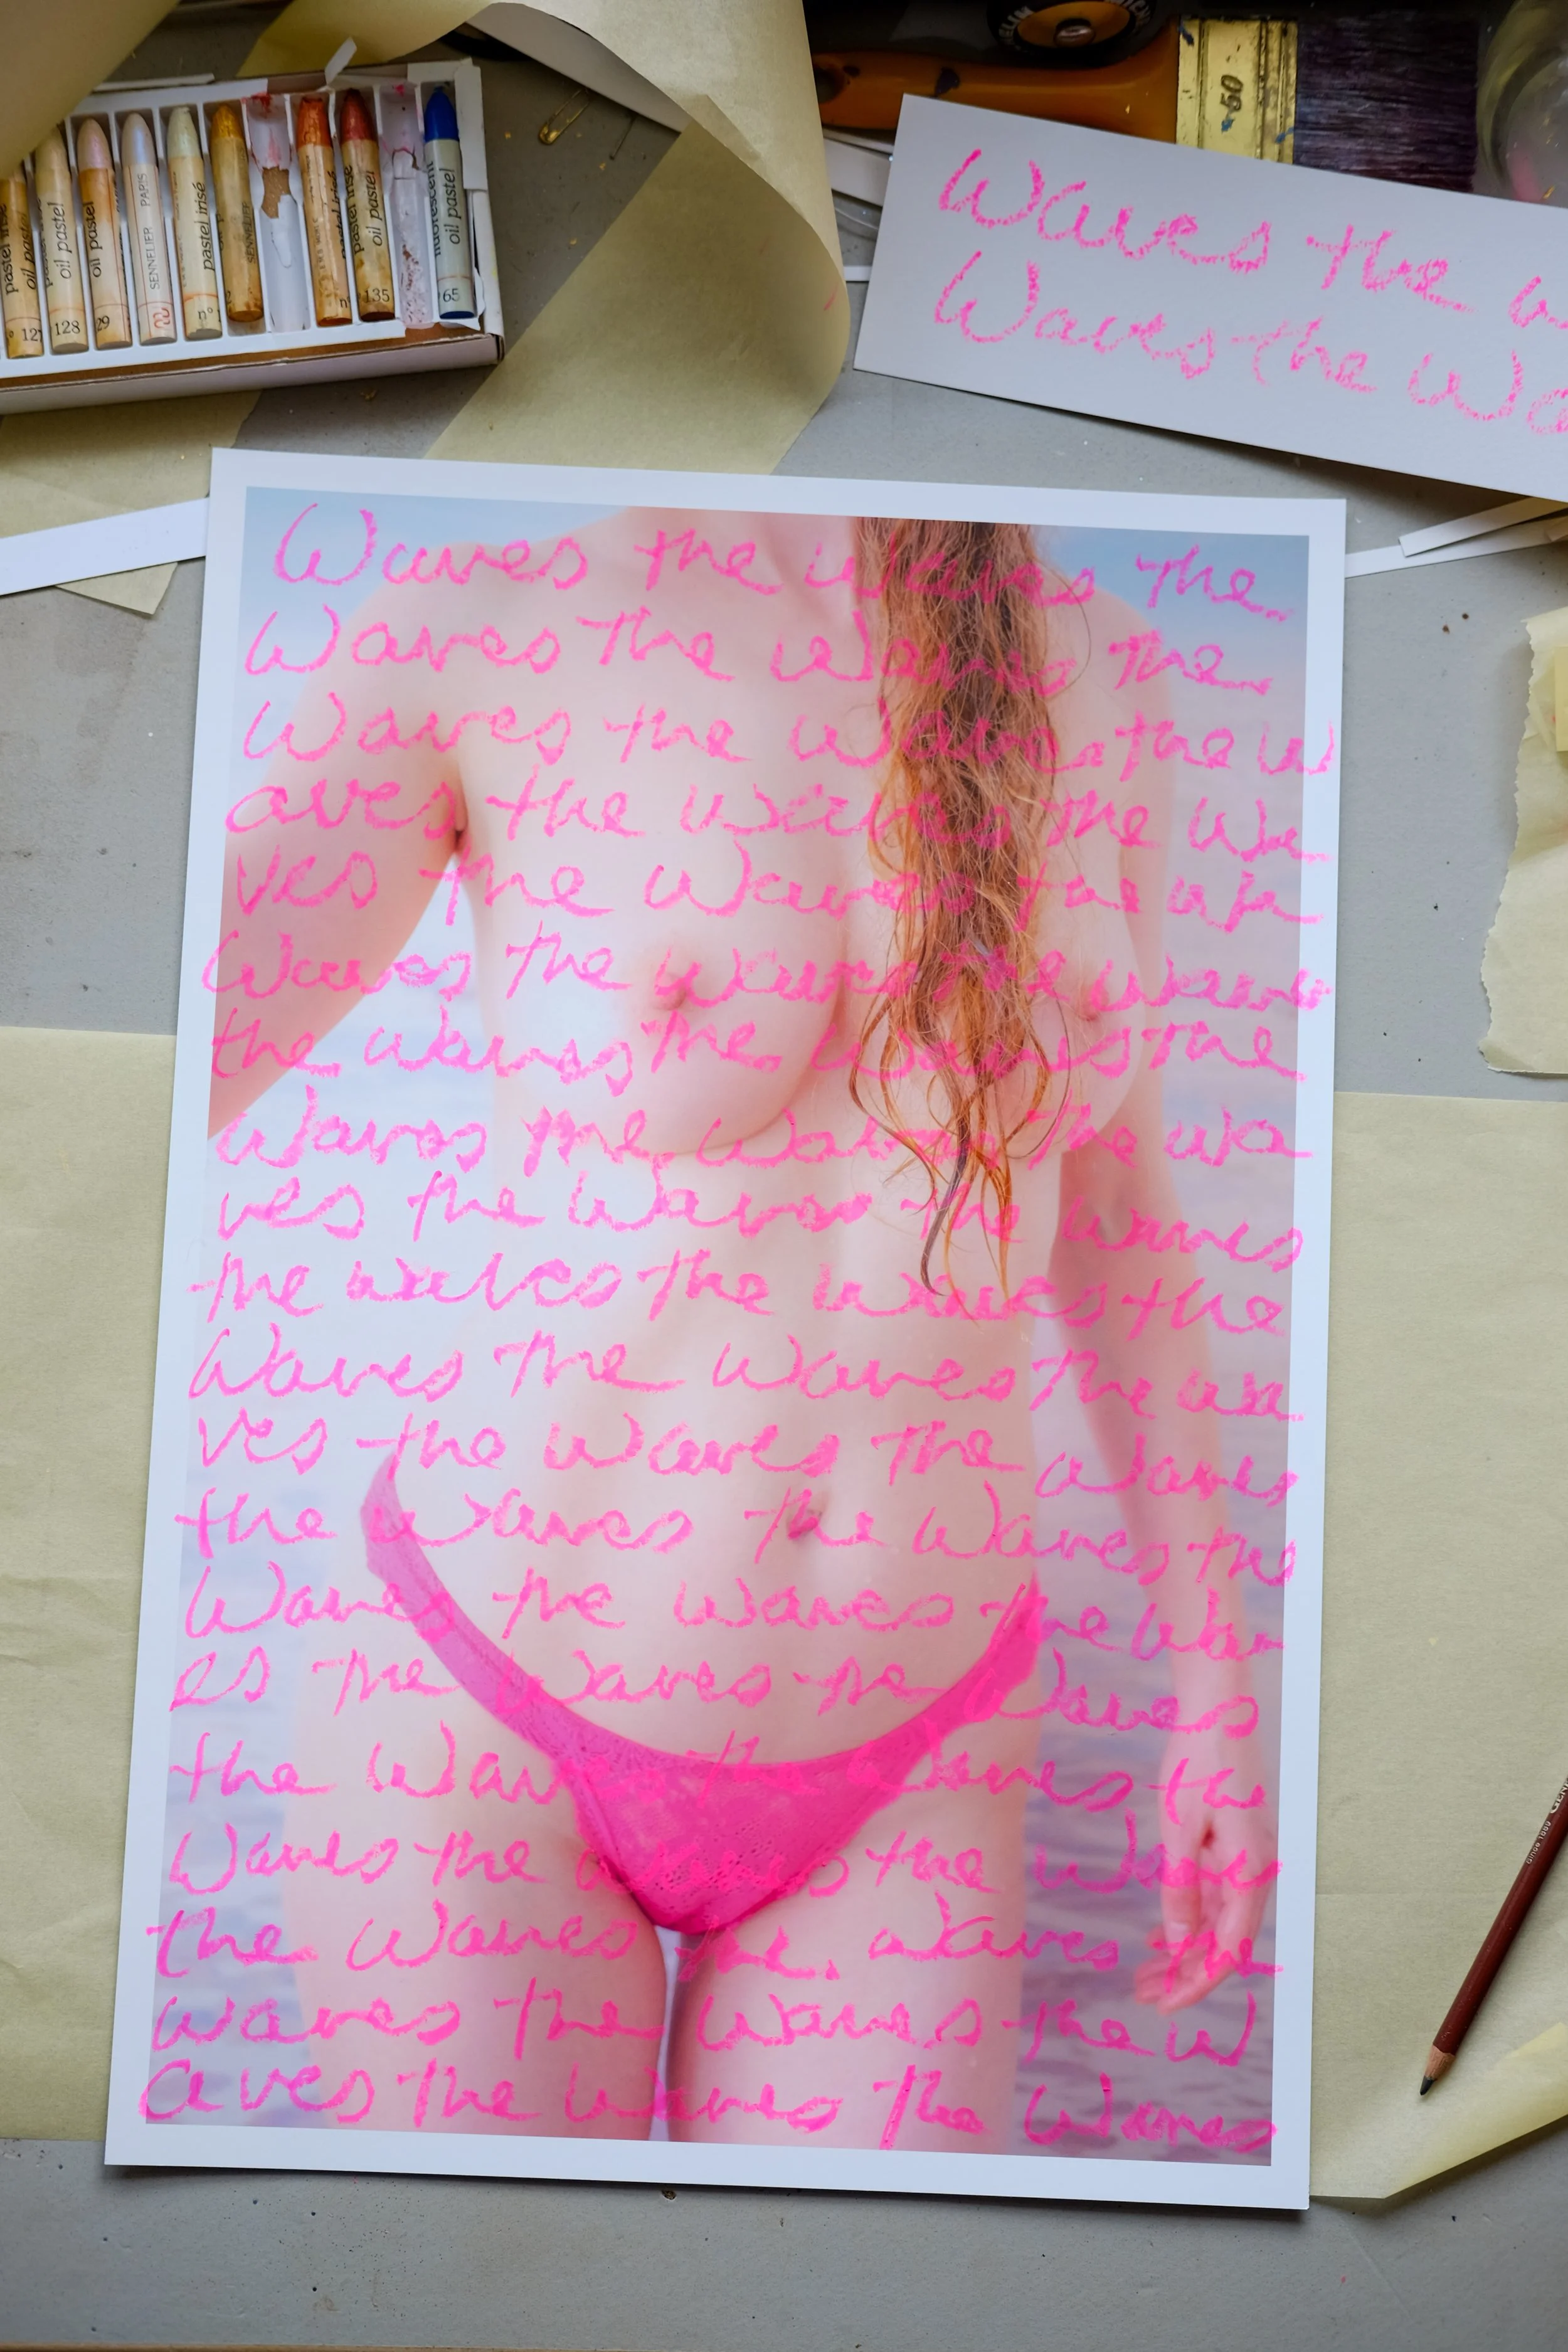 pastel irisé
oil pastel
128
oil pastel
29
SENNELIER PARIS
pastel irisé
n°
SENNELIER
pastel irisé
oil pastel
135
fluorescent
oil pastel
65
50
Waves the w
Waves the Wa
Waves the waves the
Waves the Waves the
Waves the Waves the W
aves the Waves the Wa
ves the Waves the wa
Waves the waves the waves
the waves the Waves the
Waves the Waves the wa
ves the Waves the waves
the waves the waves the
Waves the Waves the wa
ves the Waves the waves
the Waves the Waves the
Waves the waves the Wav
es the Waves the Waves
the Waves the Waves the
Waves the waves the Waves
the Waves the. Waves the
waves the Waves the W
aves the Waves the Waves